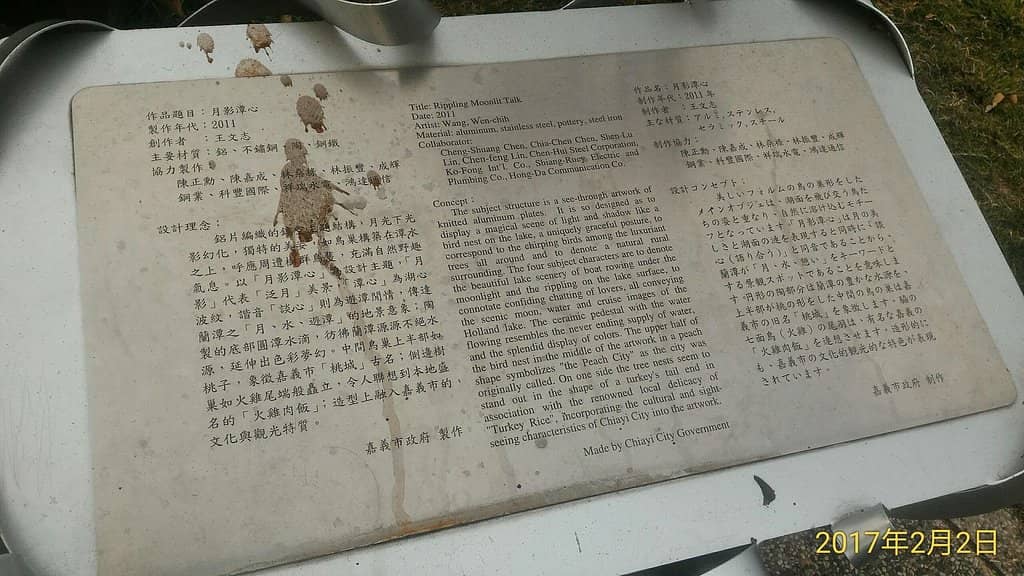 作品題目：月影潭心
製作年代：2011
創作者：王文志
主要材質：鋁、不鏽鋼、陶、鋼鐵
協力製作：
陳正勳、陳嘉成、林 、林振豐、成輝
鋼業、科豐國際、祥瑞水 、鴻達通信
設計理念：
鋁片編織的 結構，月光下光
影幻化，獨特的美 如鳥巢築在潭水
之上，呼應周遭 充滿自然野趣
氣息。以「月影潭心」 設計主題，「月
影」代表「泛月」美景 「潭心」為湖心
波紋，諧音「談心」則為遊潭閒情，傳達
蘭潭之「月、水、遊潭」的地景意象；陶
製的底部圓潭水滴，彷彿蘭潭源源不絕水
源，延伸出色彩夢幻。中間鳥巢上半部如
桃子，象徵嘉義市「桃城」古名；側邊樹
巢如火雞尾端般矗立，令人聯想到本地區
名的「火雞肉飯」；造型上融入嘉義市的，
文化與觀光特質。
嘉義市政府 製作
Title: Rippling Moonlit Talk
Date: 2011
Artist: Wang, Wen-chih
Material: aluminum, stainless steel, pottery, steel iron
Collaborator:
Cheng-Shiung Chen, Chia-Chen Chen, Shen-Lu
Lin, Chen-feng Lin, Chen-Hui Steel Corporation,
Ko-Fong Int'L Co., Shiang-Ruey Electric and
Plumbing Co., Hong-Da Communication Co.
Concept :
The subject structure is a see-through artwork of
knitted aluminum plates. It is so designed as to
display a magical scene of light and shadow like a
bird nest on the lake, a uniquely graceful posture to
correspond to the chirping birds among the luxuriant
trees all around and to denote a natural rural
surrounding. The four subject characters are to denote
the beautiful lake scenery of boat rowing under the
moonlight and the rippling on the lake surface, to
connotate confiding chatting of lovers, all conveying
the scenic moon, water and cruise images of the
Holland lake. The ceramic pedestal with the water
flowing resembles the never ending supply of water,
and the splendid display of colors. The upper half of
the bird nest in the middle of the artwork in a peach
shape symbolizes "the Peach City" as the city was
originally called. On one side the tree nests seem to
stand out in the shape of a turkey's tail end in
association with the renowned local delicacy of
"Turkey Rice", incorporating the cultural and sight-
seeing characteristics of Chiayi City into the artwork.
Made by Chiayi City Government
作品名：月影潭心
制作年代：2011 年
制作者：王文志
主な素材：アルミ、ステンレス、
セラミック、スチール
制作協力：
陳正勳、陳嘉成、林 、林振豐、成輝
鋼業、科豐國際、祥瑞水電、鴻達通信
設計コンセプト：
美しいフォルムの鳥の巣形をした
メインオブジェは、湖面を飛び交う鳥た
ちの姿と重なり、自然に溶け込むモチー
フとなっています。「月影潭心」は月の美
しさと湖面の漣を表現すると同時に「談
心（語り合う）」と同音であることから、
蘭潭が「月、水、憩い」をキーワードと
する景観スポットであることを意味しま
す。円形の陶部分は蘭潭の豊かな水源を、
上半部が桃の形をした中間の鳥の巣は嘉
義市の旧名「桃城」を象徴します。脇の
七面鳥（火雞）の尾羽は、有名な嘉義の
「火雞飯」を連想させます。造形的に
も、嘉義市の文化的観光的な特色が表現
されています。
嘉義市政府 制作
2017年2月2日